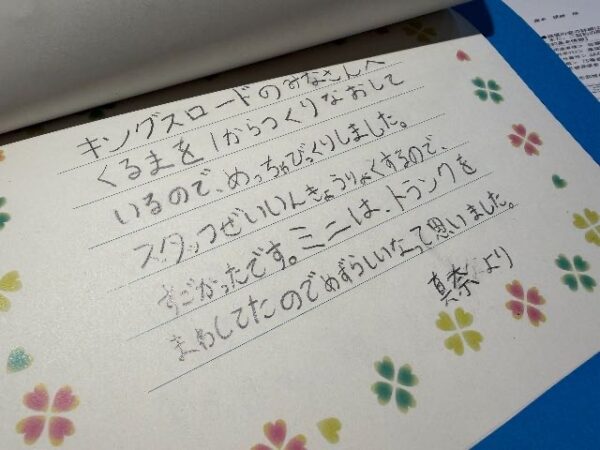 キングスロードのみなさんへ
くるまを1からつくりなおして
いるので、めっちゃびっくりしました。
スタッフぜいいんきょうりょくするので、
すごかったです。ミニは、トランクを
まわしてたのでめずらしいなって思いました。
真奈より